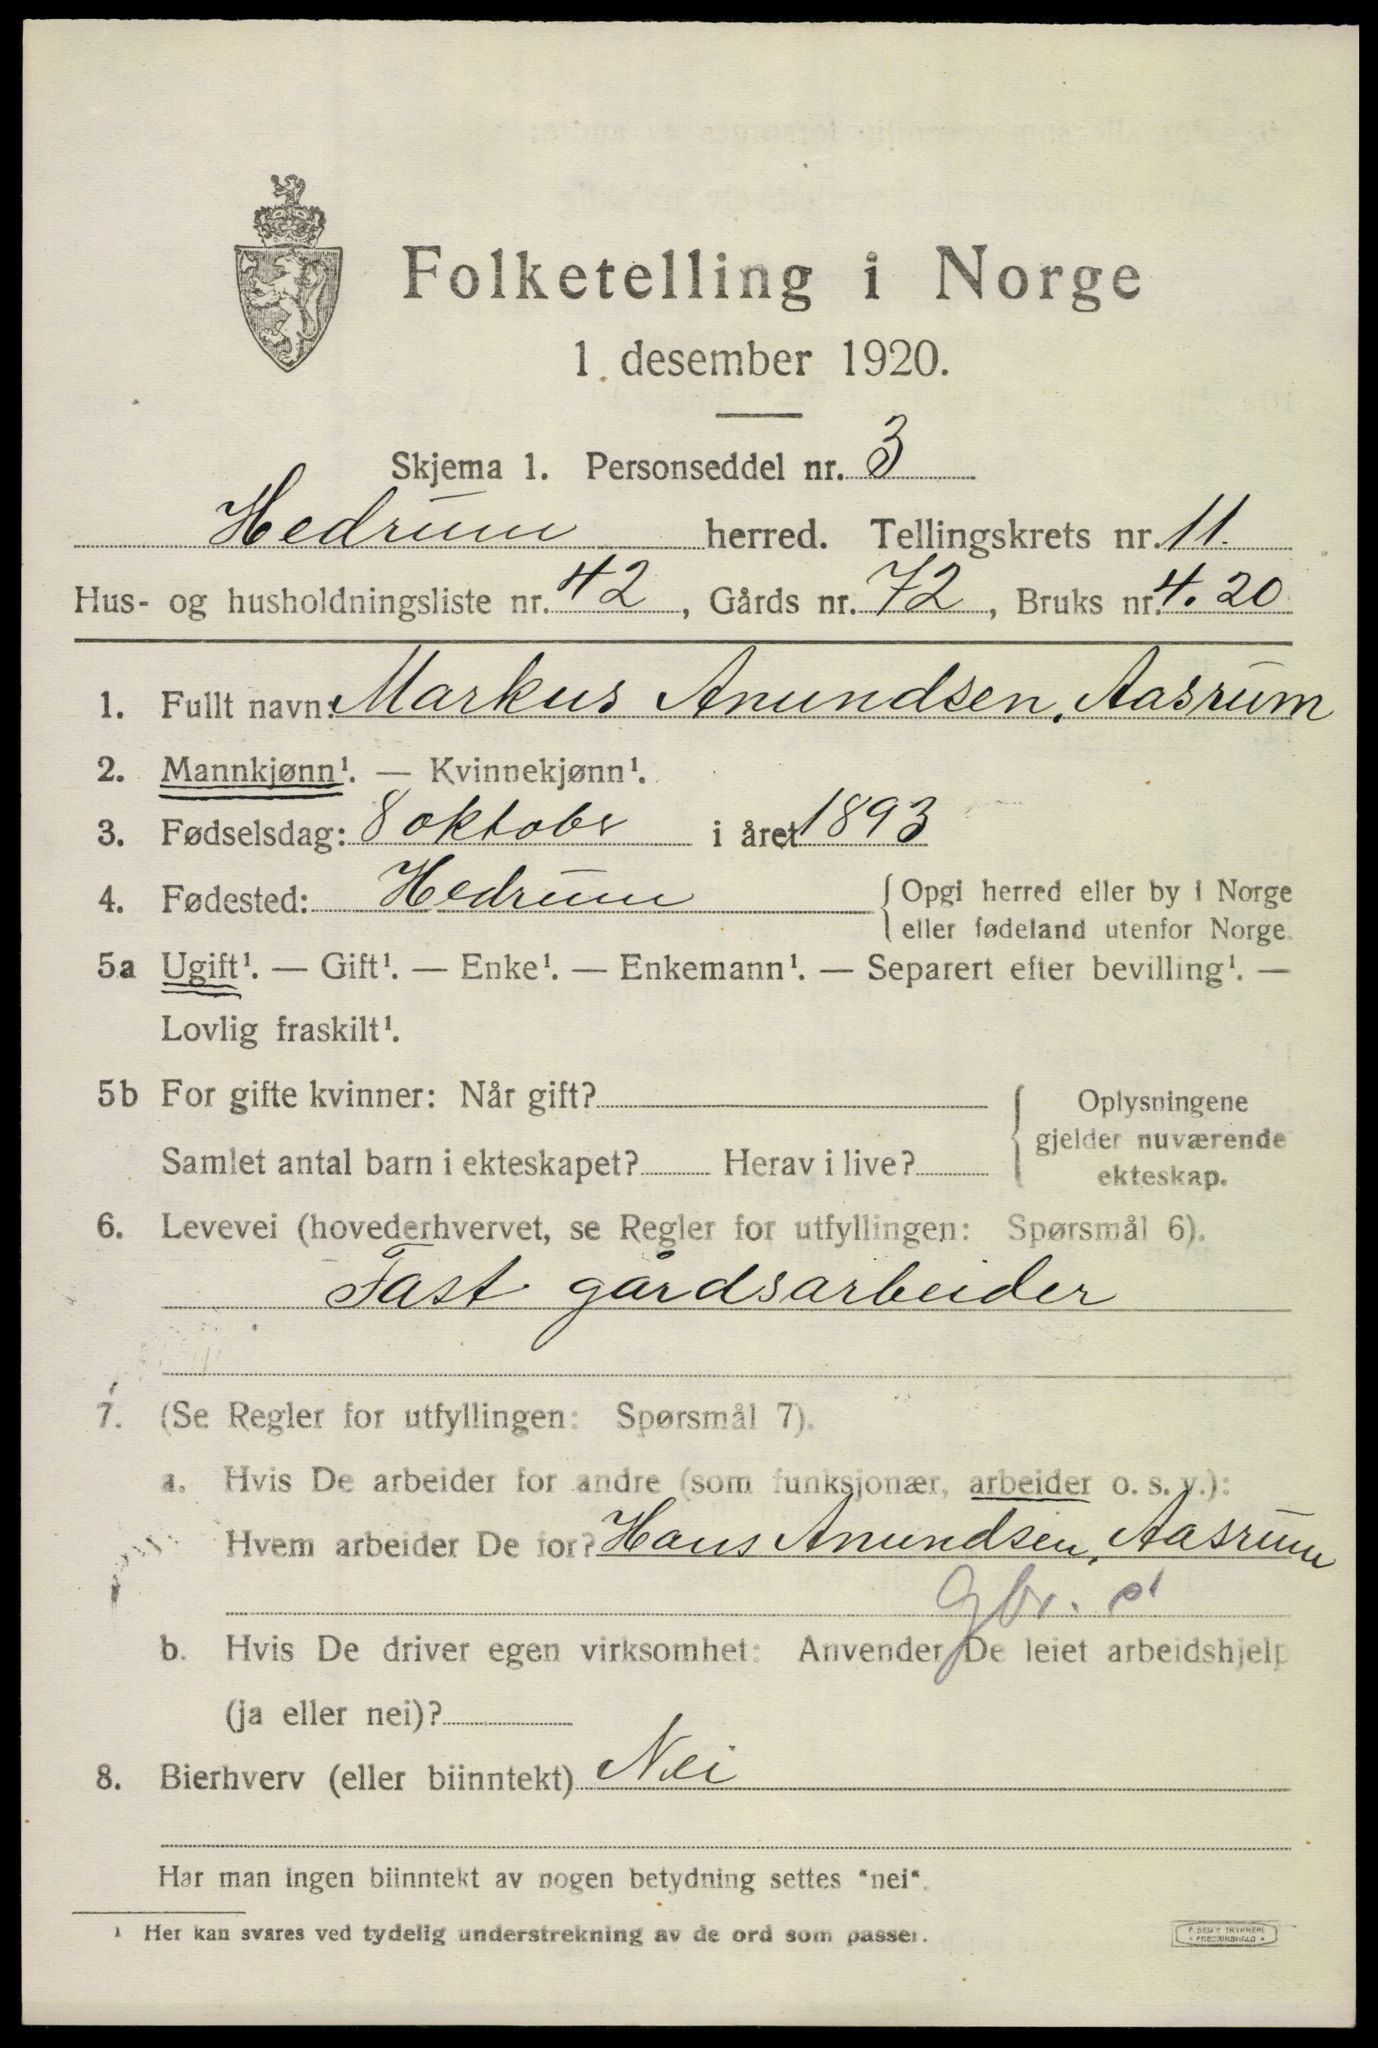 Folketelling i Norge
1. desember 1920.
Skjema 1. Personseddel nr. 3
Hedrum herred. Tellingskrets nr. 11.
Hus- og husholdningsliste nr. 42, Gårds nr. 72, Bruks nr. 4.20
1. Fullt navn: Markus Anundsen, Aasrum
2. Mannkjønn¹. — Kvinnekjønn¹.
3. Fødselsdag: 8 oktobr i året 1893
4. Fødested: Hedrum { Opgi herred eller by i Norge
eller fødeland utenfor Norge.
5a Ugift¹. — Gift¹. — Enke¹. — Enkemann¹. — Separert efter bevilling¹. —
Lovlig fraskilt¹.
5b For gifte kvinner: Når gift? { Oplysningene
gjelder nuværende
Samlet antal barn i ekteskapet? Herav i live?
ekteskap.
6. Levevei (hovederhvervet, se Regler for utfyllingen: Spørsmål 6).
Fast gårdsarbeider
7. (Se Regler for utfyllingen: Spørsmål 7).
a. Hvis De arbeider for andre (som funksjonær, arbeider o. s. v.):
Hvem arbeider De for? Hans Anundsen, Aasrum
gbr.
b. Hvis De driver egen virksomhet: Anvender De leiet arbeidshjelp
(ja eller nei)?
8. Bierhverv (eller biinntekt) Nei
Har man ingen biinntekt av nogen betydning settes "nei".
¹ Her kan svares ved tydelig understrekning av de ord som passer.
FREDRIKSHALD